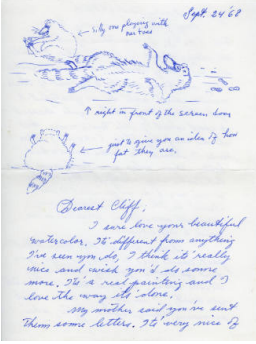 Sept. 24 '68
silly one playing with
his toes
right in front of the screen door
just to give you an idea of how
fat they are.
Dearest Cliff,
I sure love your beautiful
watercolor. It's different from anything
I've seen you do, I think it's really
nice and wish you'd do some
more. It's a real painting and I
love the way it's done.
My mother said you've sent
them some letters. It's very nice of